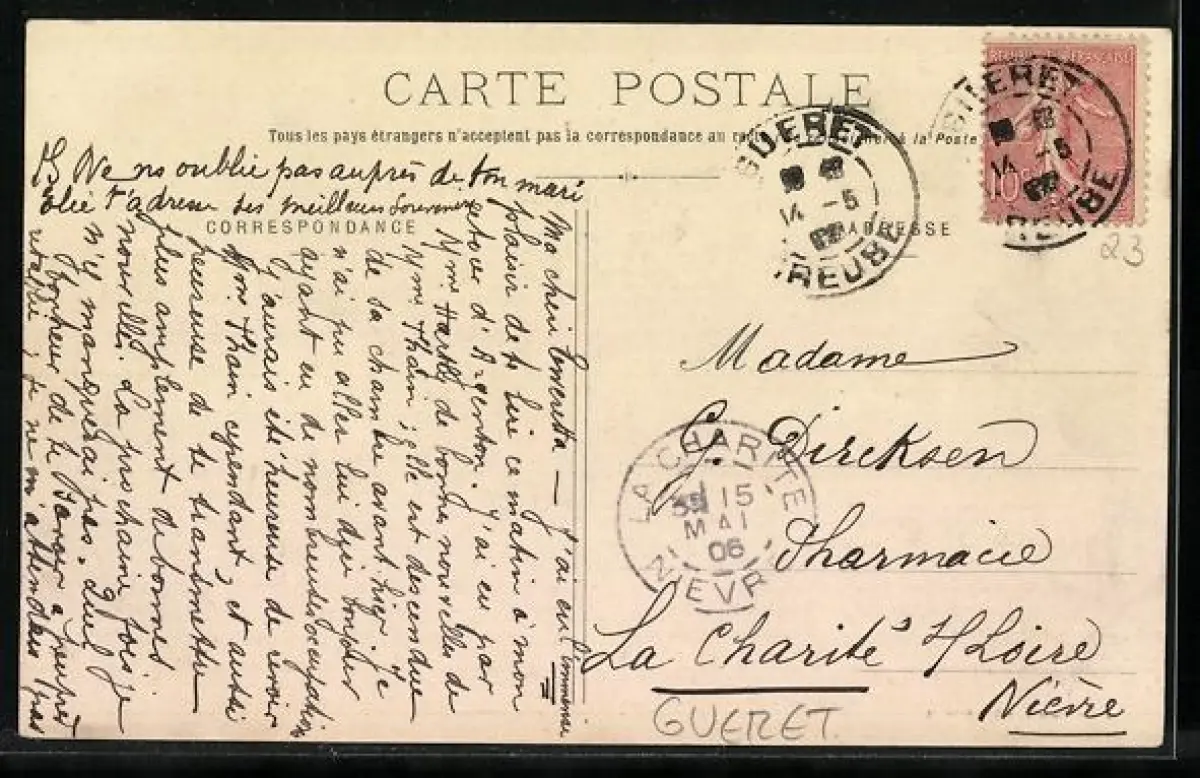 CARTE POSTALE
Tous les pays étrangers n'acceptent pas la correspondance au à la Poste
CORRESPONDANCE
ADRESSE
REPUBLIQUE FRANÇAISE
10c
GUERET
14 -5
CREUSE
GUERET
14 -5
CREUSE
23
PS Ne ns oublie pas auprès de ton mari
Elie t'adresse ses meilleurs Souvenirs
Ma chère J'ai eu
plaisir de te lire ce matin à mon
retour d'Argenton. J'ai eu par
Mme de bonnes nouvelles de
Mme Thain; elle est descendue
de sa chambre avant hier. Je
n'ai pu aller lui dire bonjour
ayant eu de nombreuses occupations
J'aurais été heureuse de revoir
Mme Thain cependant, et aussi
heureuse de te transmettre
plus amplement de bonnes
nouvelles. La prochaine fois je
n'y manquerai pas. Quel
bonheur de te à peu près
rétablie, je ne m'attendais pas
Madame
G. Dircksen
Pharmacie
La Charité s/Loire
Nièvre
LA CHARITE
15
MAI
06
NIEVRE
GUERET.